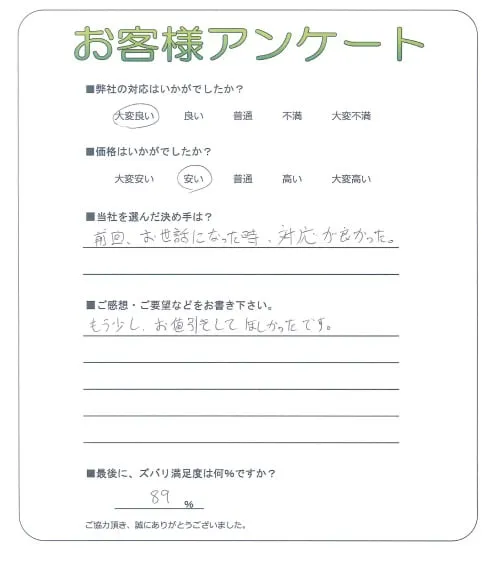 お客様アンケート
■弊社の対応はいかがでしたか？
大変良い 良い 普通 不満 大変不満
■価格はいかがでしたか？
大変安い 安い 普通 高い 大変高い
■当社を選んだ決め手は？
前回、お世話になった時、対応が良かった。
■ご感想・ご要望などをお書き下さい。
もう少し、お値引をしてほしかったです。
■最後に、ズバリ満足度は何%ですか？
89 %
ご協力頂き、誠にありがとうございました。